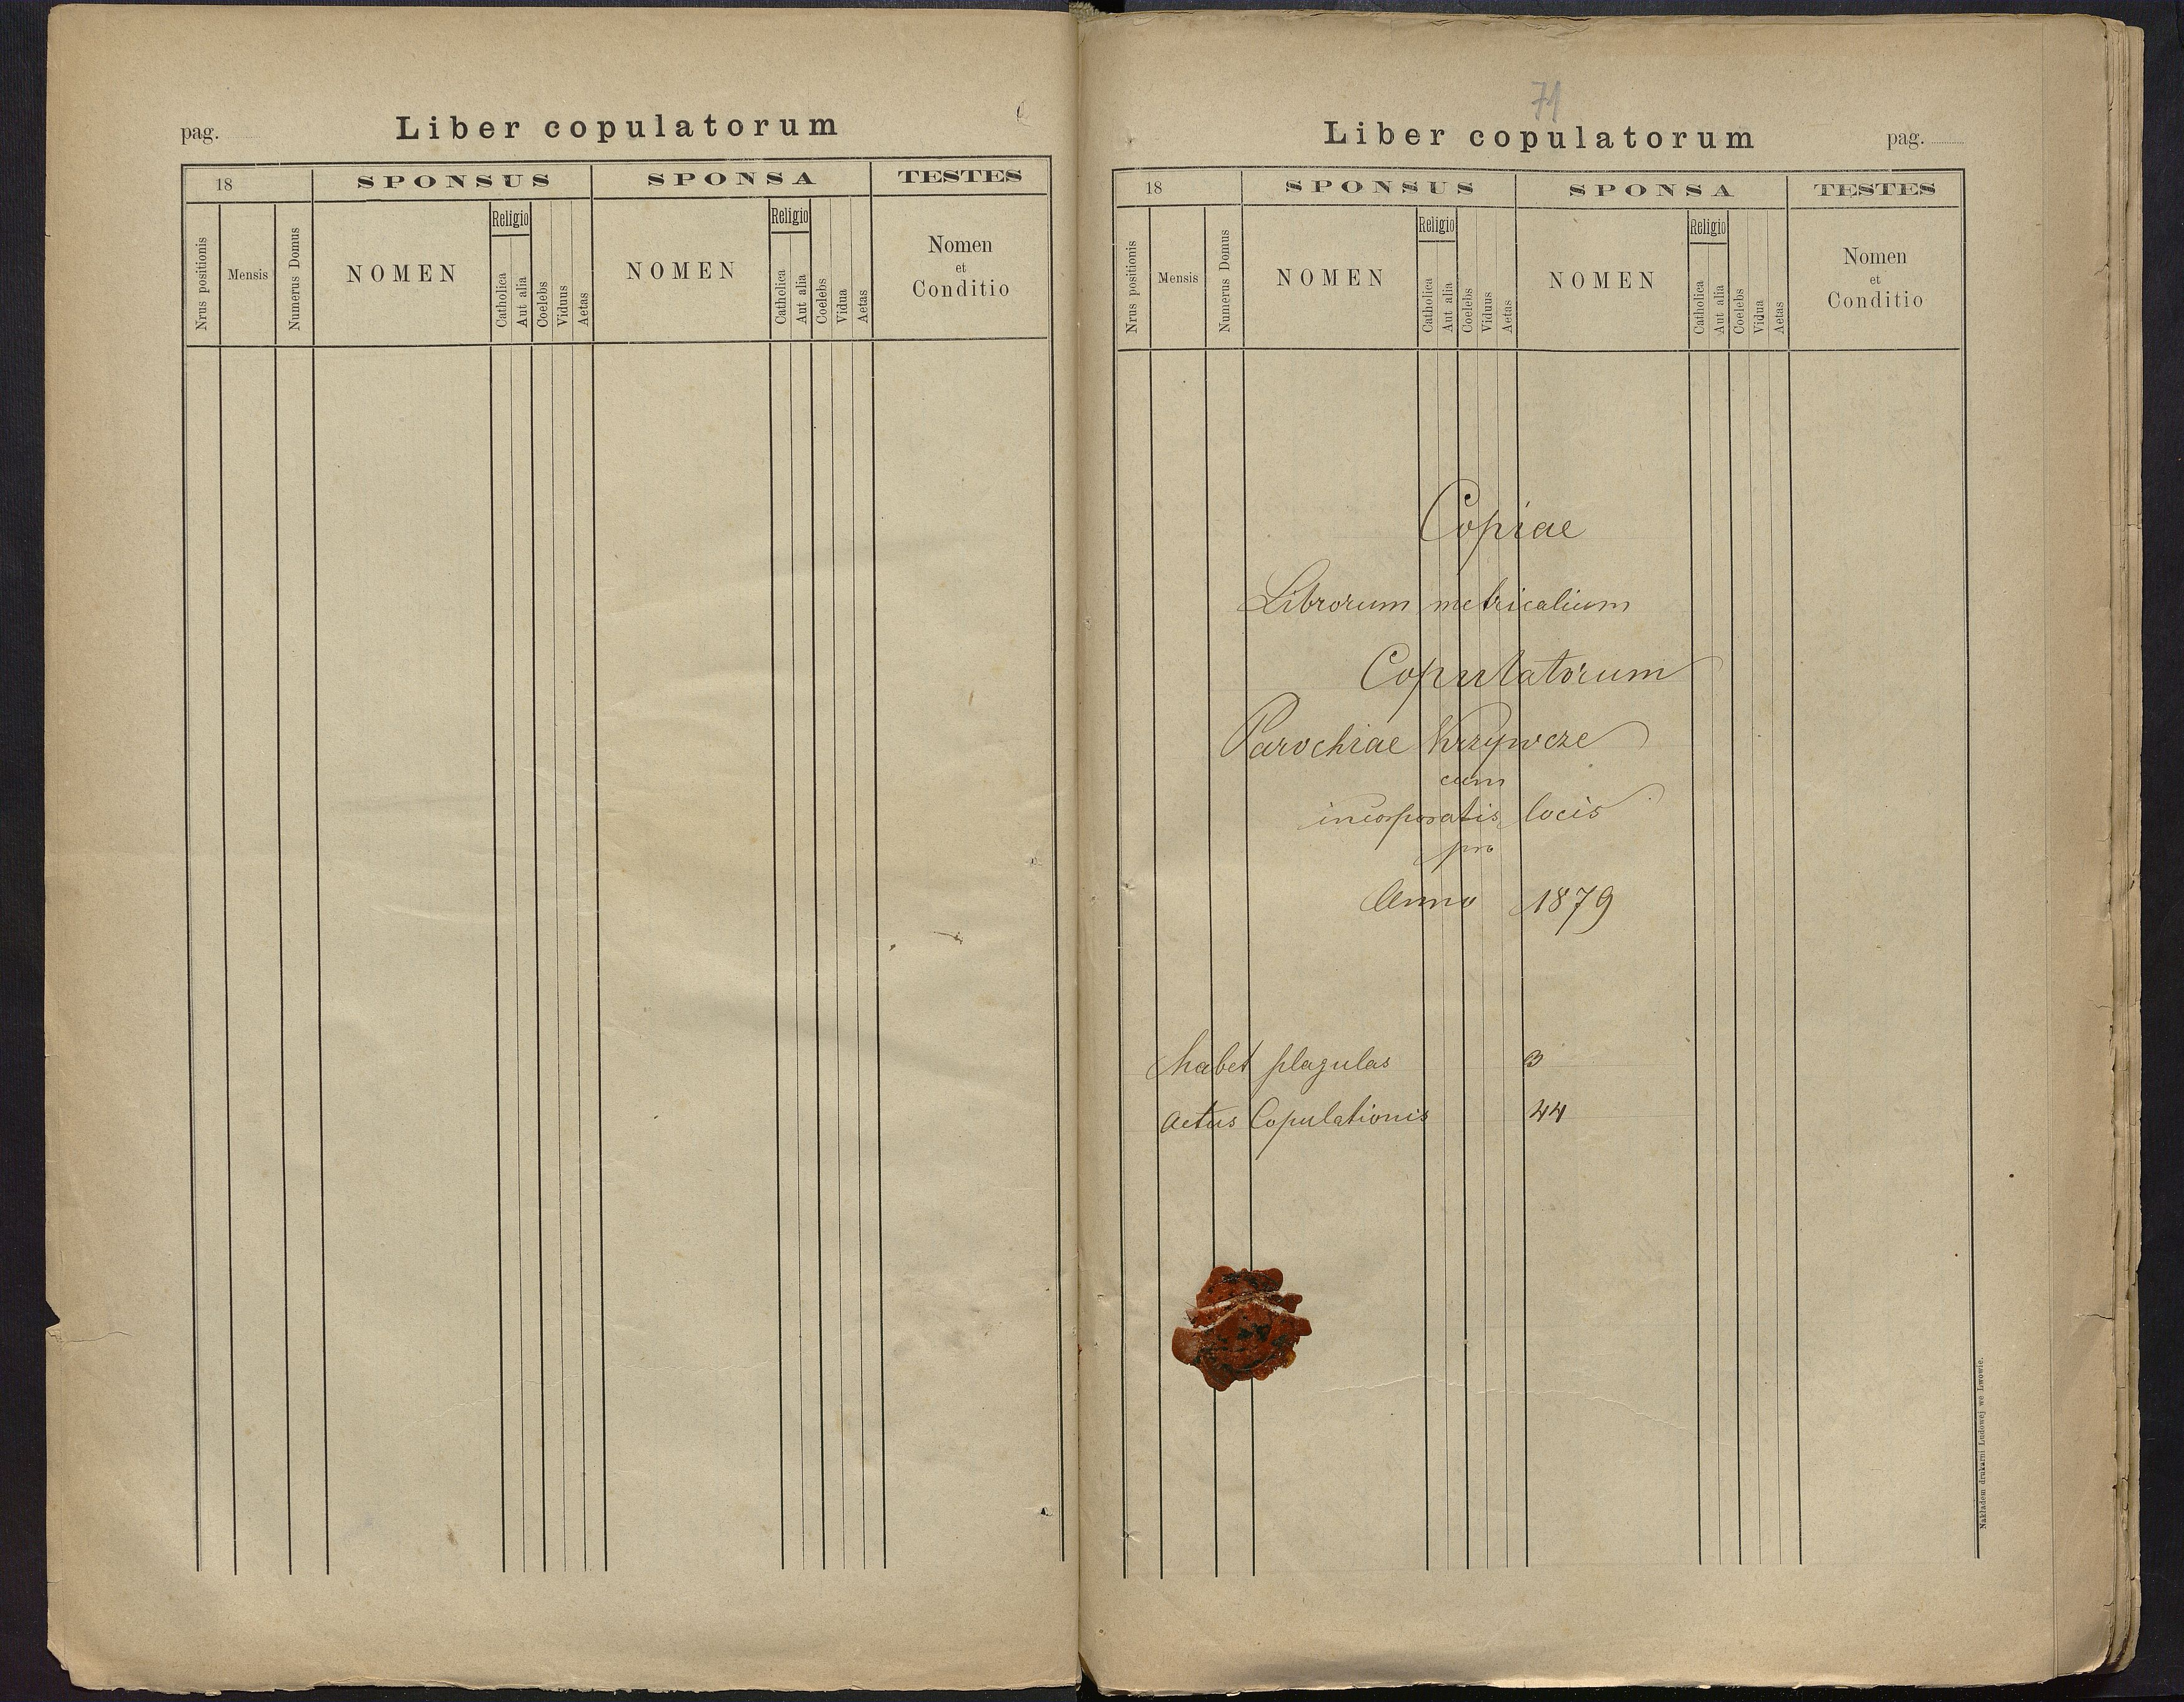 pag.
Liber copulatorum
18
SPONSUS
SPONSA
TESTES
Nrus positionis
Mensis
Numerus Domus
NOMEN
Religio
Catholica
Aut alia
Coelebs
Viduus
Aetas
NOMEN
Religio
Catholica
Aut alia
Coelebs
Vidua
Aetas
Nomen
et
Conditio
71
Liber copulatorum
pag.
18
SPONSUS
SPONSA
TESTES
Nrus positionis
Mensis
Numerus Domus
NOMEN
Religio
Catholica
Aut alia
Coelebs
Viduus
Aetas
NOMEN
Religio
Catholica
Aut alia
Coelebs
Vidua
Aetas
Nomen
et
Conditio
Copiae
Librorum metricalium
Copulatorum
Parochiae Krzywcze
cum
incorporatis locis
pro
Anno 1879
habet plagulas 3
Actus Copulationis 44
Nakładem drukarni Ludowej we Lwowie.